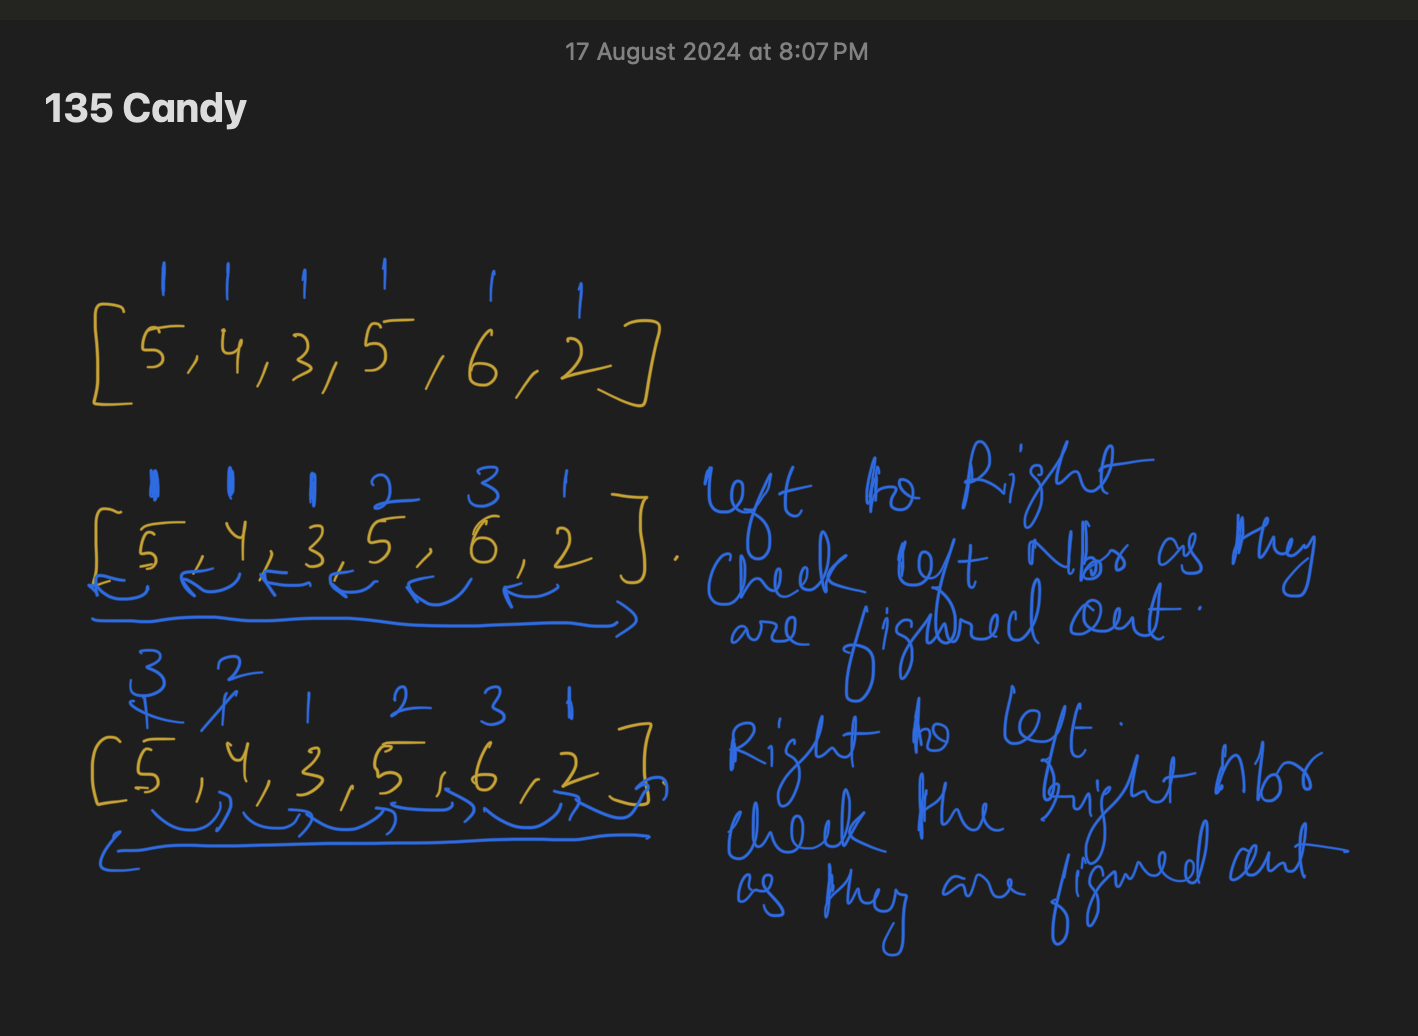 17 August 2024 at 8:07 PM
135 Candy
1 1 1 1 1 1
[5, 4, 3, 5, 6, 2]
1 1 1 2 3 1
[5, 4, 3, 5, 6, 2].
Left to Right
Check left Nbr as they
are figured out.
3 2
1 1 1 2 3 1
[5, 4, 3, 5, 6, 2]
Right to left.
Check the right Nbr
as they are figured out